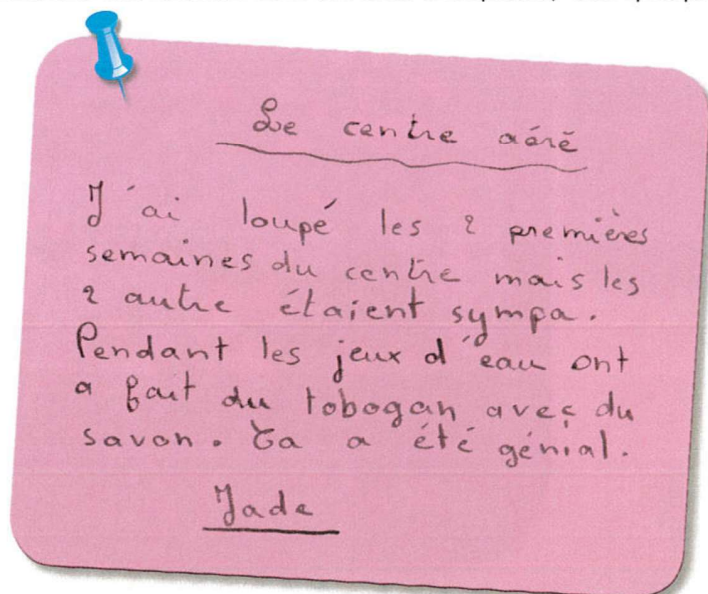 Le centre aéré
J'ai loupé les 2 premières
semaines du centre mais les
2 autre étaient sympa.
Pendant les jeux d'eau ont
a fait du tobogan avec du
savon. Ça a été génial.
Jade